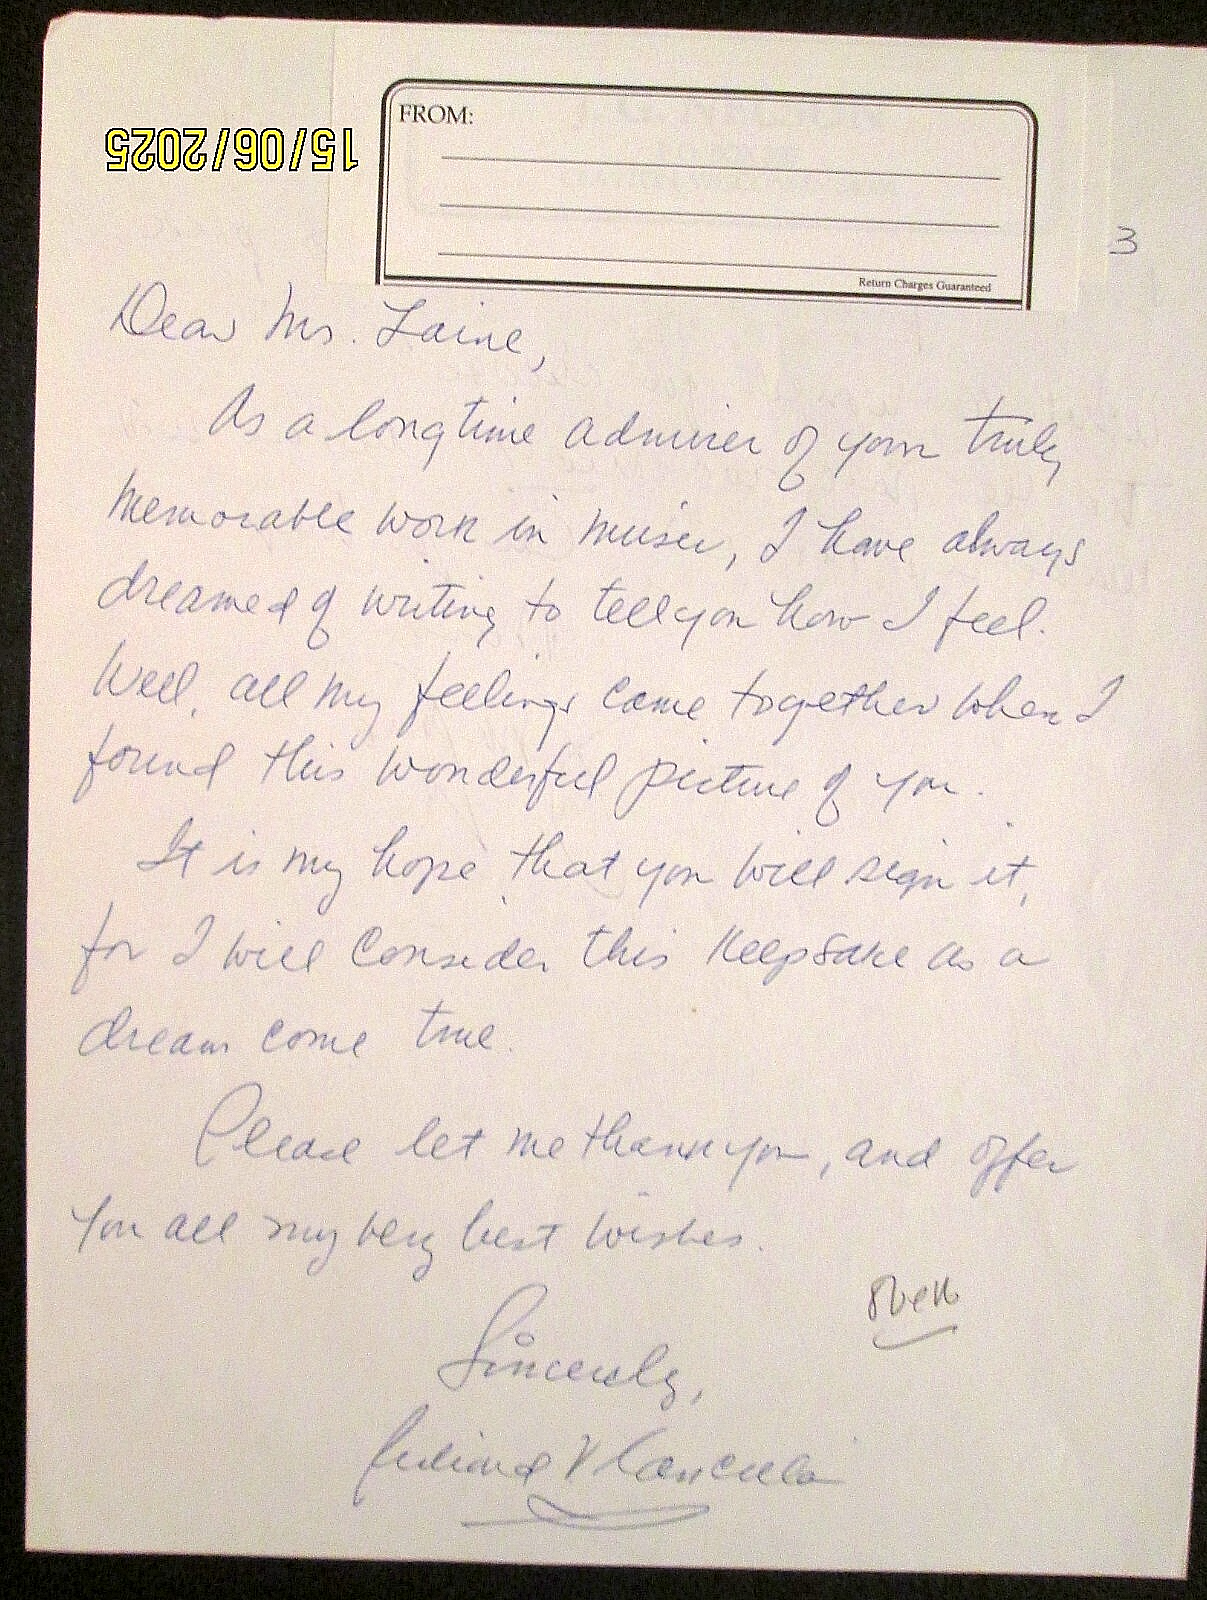 15/06/2025
FROM:
Return Charges Guaranteed
3
Dear Ms. Laine,
As a longtime admirer of your truly
memorable work in music, I have always
dreamed of writing to tell you how I feel.
Well, all my feelings came together when I
found this wonderful picture of you.
It is my hope that you will sign it,
for I will consider this keepsake as a
dream come true.
Please let me thank you, and offer
you all my very best wishes.
Sincerely,